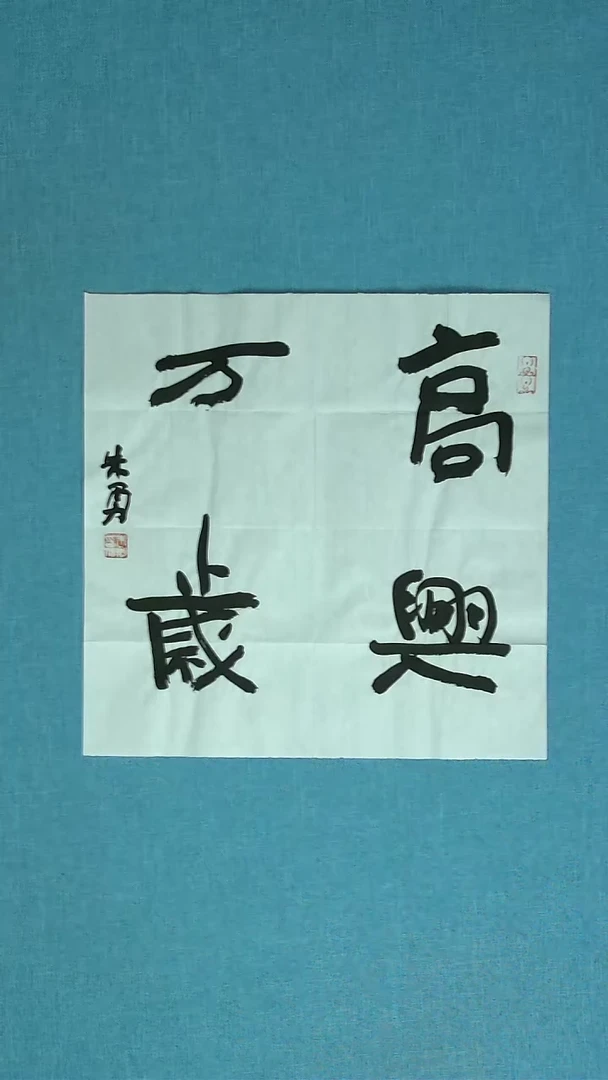 高興
万歳
朱勇